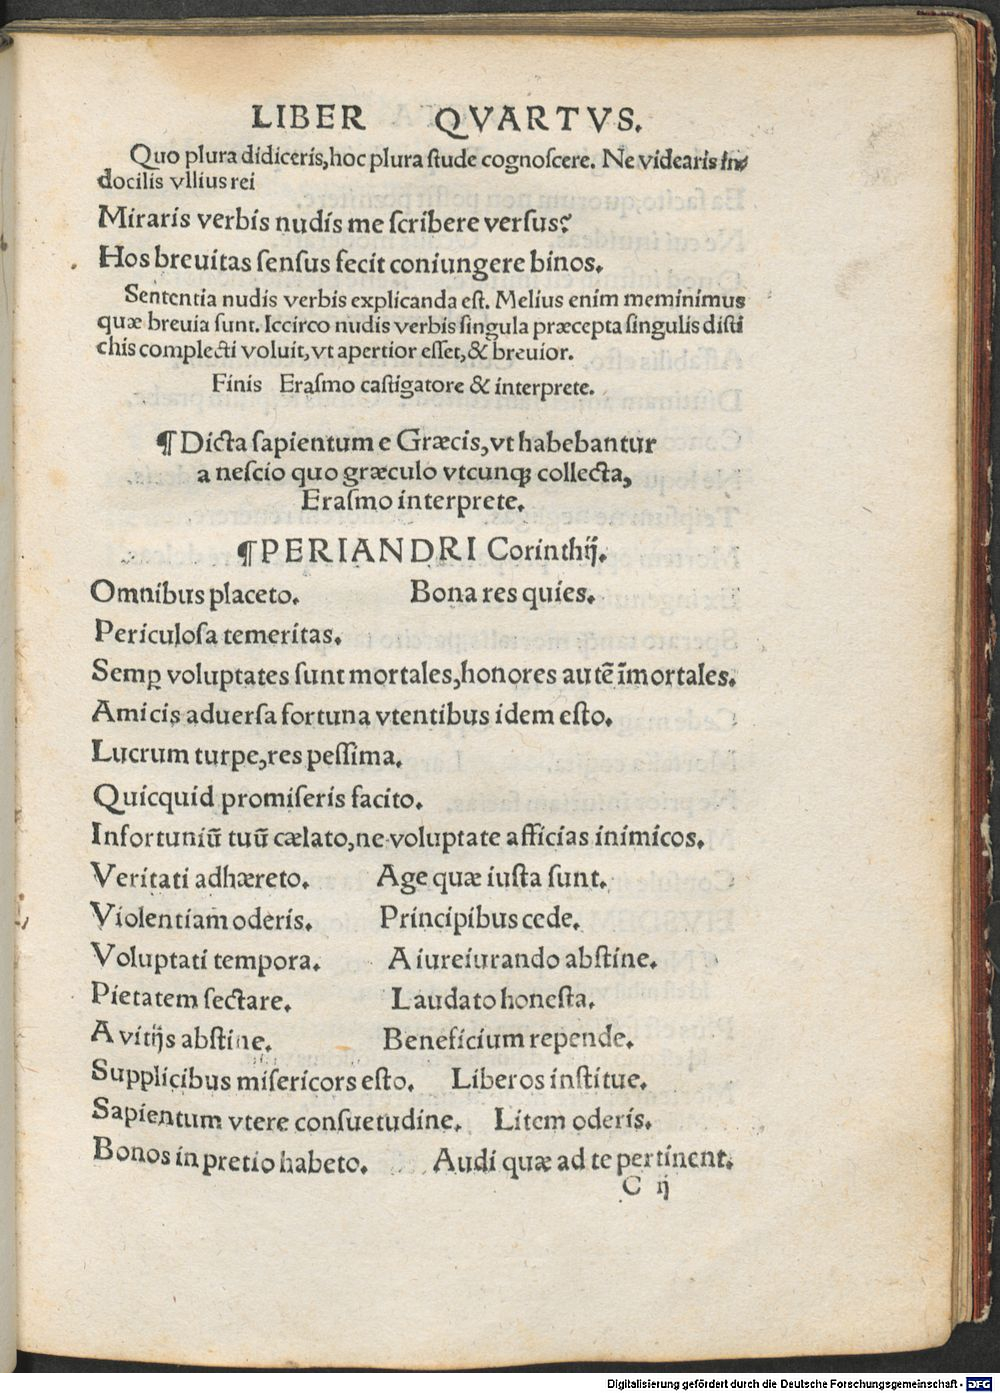 LIBER QVARTVS.
Quo plura didiceris, hoc plura ſtude cognoſcere. Ne videaris in⸗
docilis vllius rei
Miraris verbis nudis me ſcribere verſus?
Hos breuitas ſenſus fecit coniungere binos.
Sententia nudis verbis explicanda eſt. Melius enim meminimus
quæ breuia ſunt. Iccirco nudis verbis ſingula præcepta ſingulis diſti
chis complecti voluit, vt apertior eſſet, & breuior.
Finis Eraſmo caſtigatore & interprete.
¶ Dicta ſapientum e Græcis, vt habebantur
a neſcio quo græculo vtcunq; collecta,
Eraſmo interprete.
¶ PERIANDRI Corinthij.
Omnibus placeto. Bona res quies.
Periculoſa temeritas.
Semꝑ voluptates ſunt mortales, honores autē īmortales.
Amicis aduerſa fortuna vtentibus idem eſto.
Lucrum turpe, res peſſima.
Quicquid promiſeris facito.
Infortuniū tuū cælato, ne voluptate afficias inimicos.
Veritati adhæreto. Age quæ iuſta ſunt.
Violentiam oderis. Principibus cede.
Voluptati tempora. A iureiurando abſtine.
Pietatem ſectare. Laudato honeſta.
A vitijs abſtine. Beneficium repende.
Supplicibus miſericors eſto. Liberos inſtitue.
Sapientum vtere conſuetudine. Litem oderis.
Bonos in pretio habeto. Audi quæ ad te pertinent.
C ij
Digitalisierung gefördert durch die Deutsche Forschungsgemeinschaft - DFG